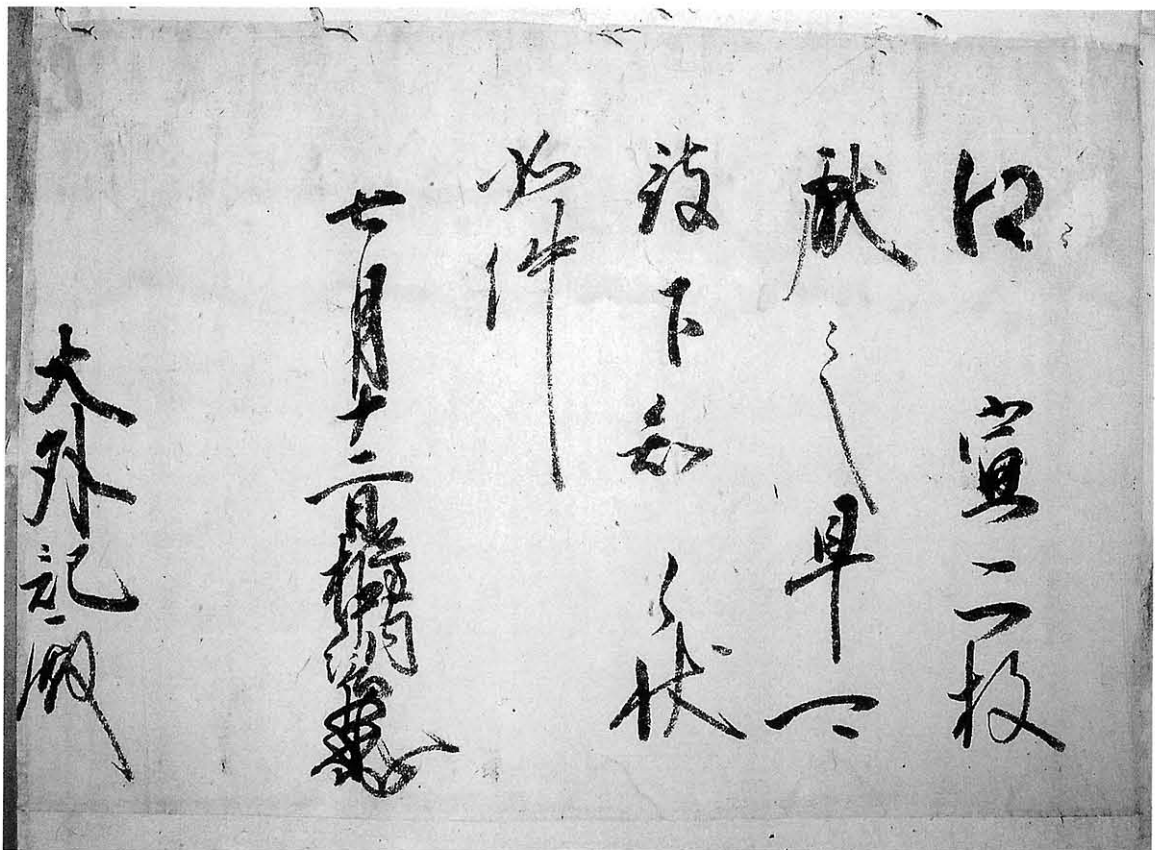 口宣二枚
献之早可
被下知之状
如件
七月十二日権中納言
大外記殿